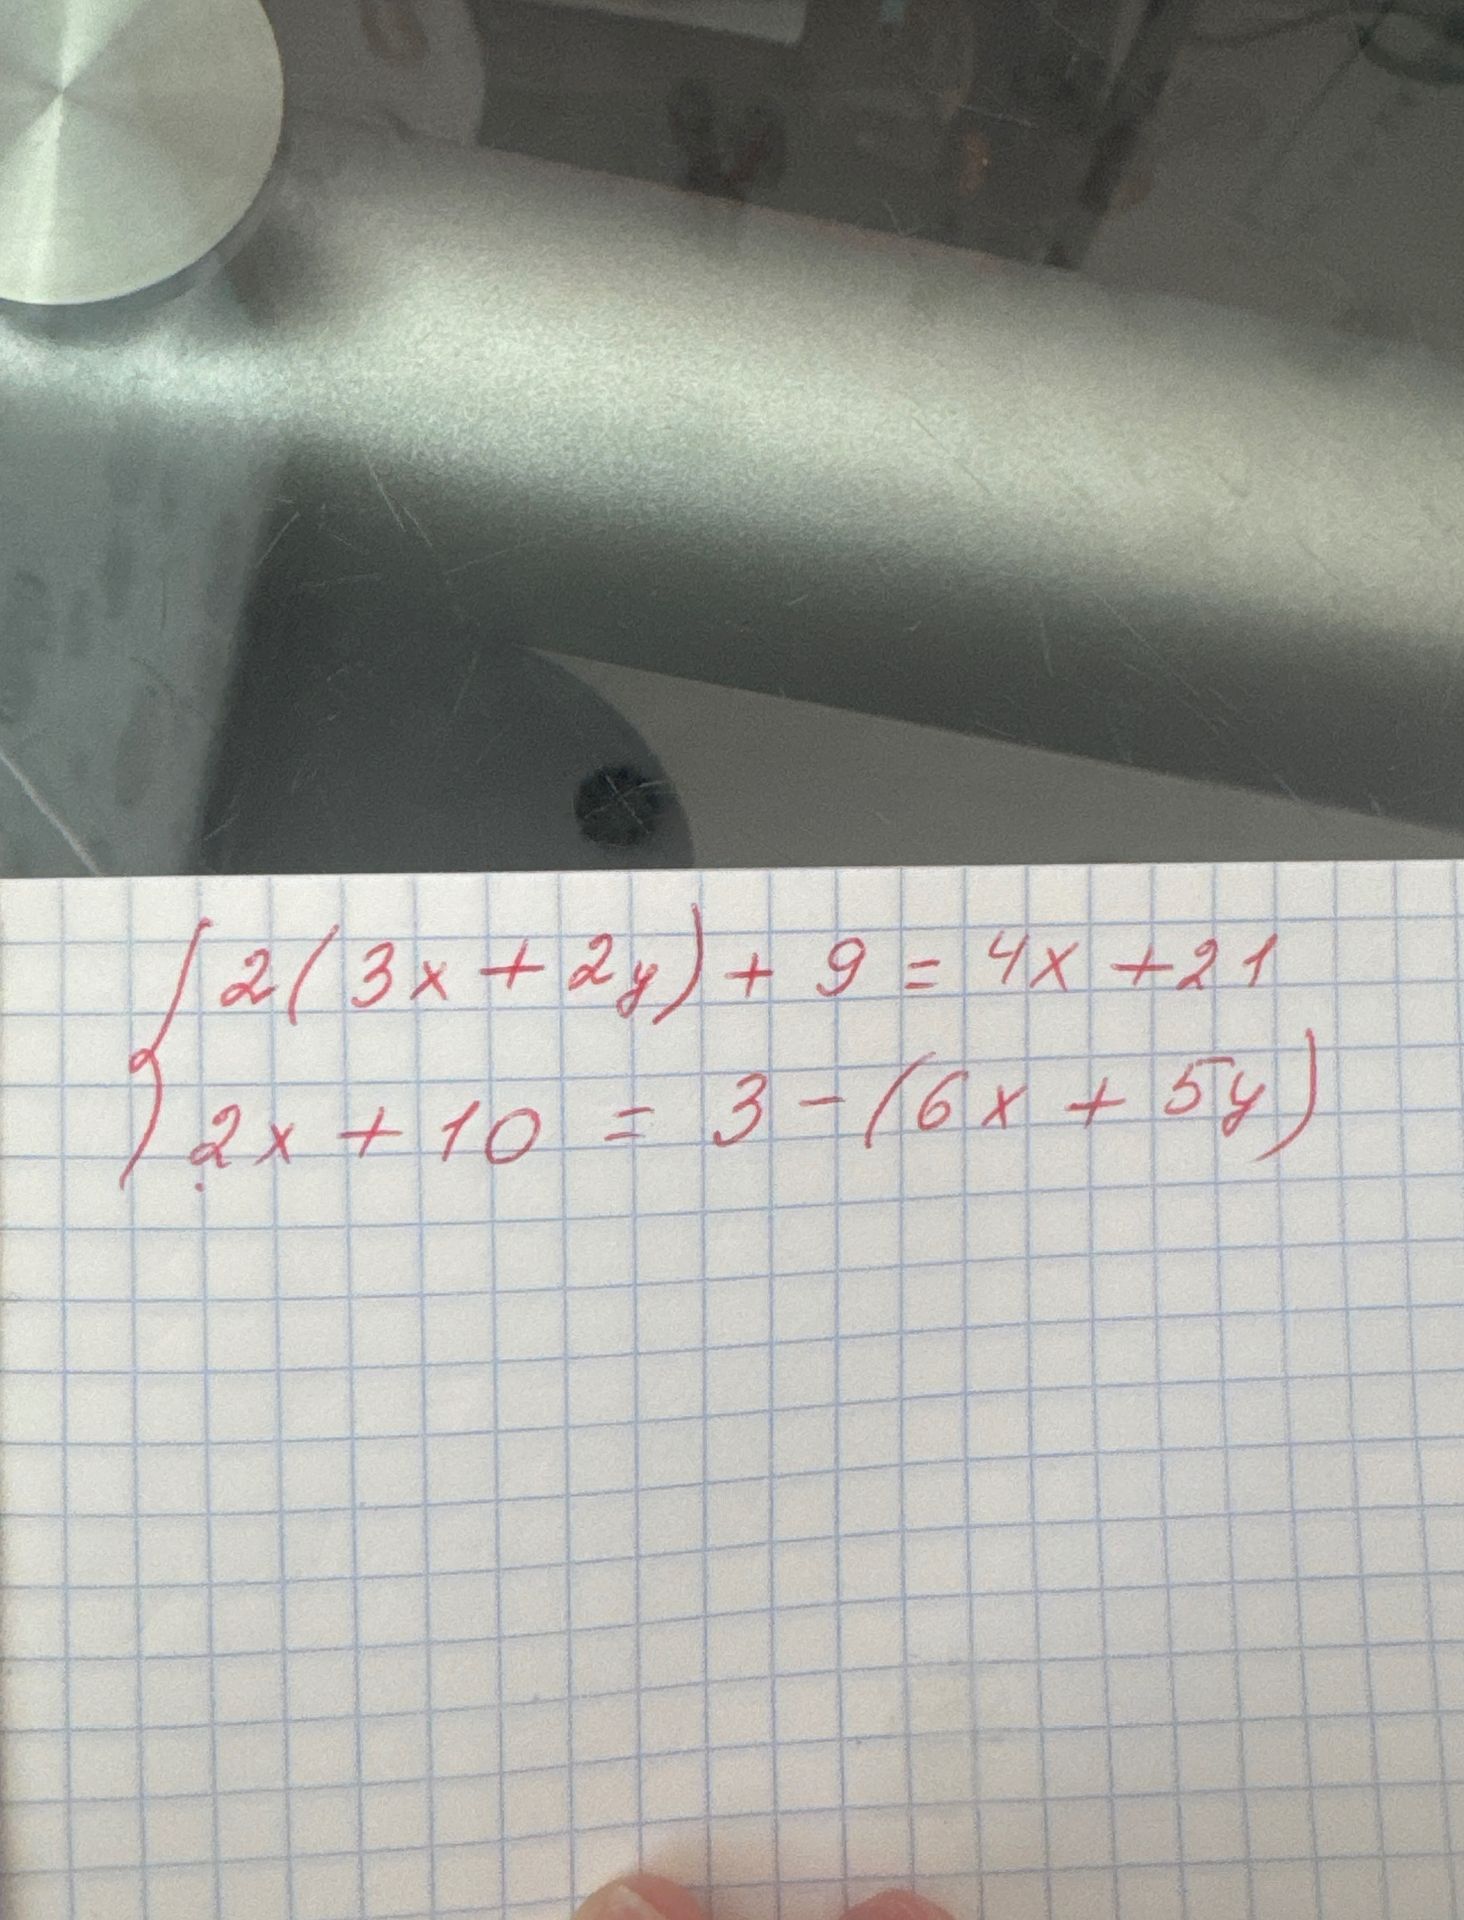 2(3x + 2y) + 9 = 4x + 21
2x + 10 = 3 - (6x + 5y)